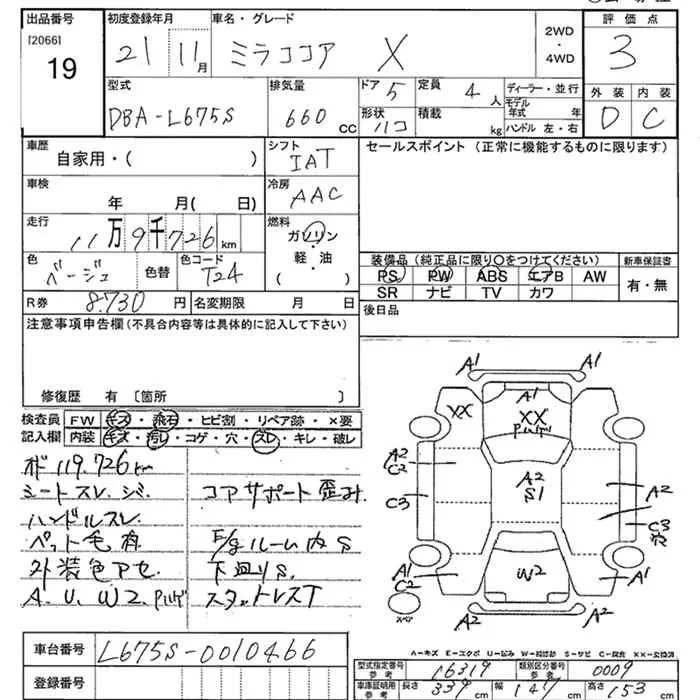 出品番号 [2066] 19
初度登録年月 21 11月
車名・グレード ミラココア X
2WD・4WD
評価点 3
型式 DBA-L675S
排気量 660 CC
ドア 5
定員 4人
形状 ハコ
積載 kg
ディーラー・並行
モデル年式 年
ハンドル 左・右
外装 D
内装 C
車歴 自家用・( )
シフト IAT
セールスポイント (正常に機能するものに限ります)
車検 年 月( 日)
冷房 AAC
走行 11万9千726km
燃料 ガソリン 軽・油 ( )
色 ベージュ 色替
色コード T24
装備品(純正品に限り○をつけてください)
新車保証書 有・無
PS PW ABS エアB AW
SR ナビ TV カワ
R券 8730円
名変期限 月 日
後日品
注意事項申告欄(不具合内容等は具体的に記入して下さい)
修復歴 有 〔箇所 〕
検査員記入欄
FW キズ・飛石・ヒビ割・リペア跡・×要
内装 キズ・汚レ・コゲ・穴・スレ・キレ・破レ
119.726km
シートスレ.シミ コアサポート歪み
ハンドルスレ.
ペット毛有 F/gルーム内S
外装色アセ 下廻りS.
A.U.W2.Pハゲ スタットレスT
A1 A1
A1
XX XX
Pハゲ
A2 C2
A2 S1
C3 A2
C3
A1 C2
W2
A1
A2
スペア
A-キズ E-エクボ U-凹み W-補修跡 S-サビ C-腐食 XX-交換済
車台番号 L675S-0010466
登録番号
型式指定番号 参考 16319
類別区分番号 参考 0009
車庫証明用 参考 長さ 339cm 幅 147cm 高さ 153cm